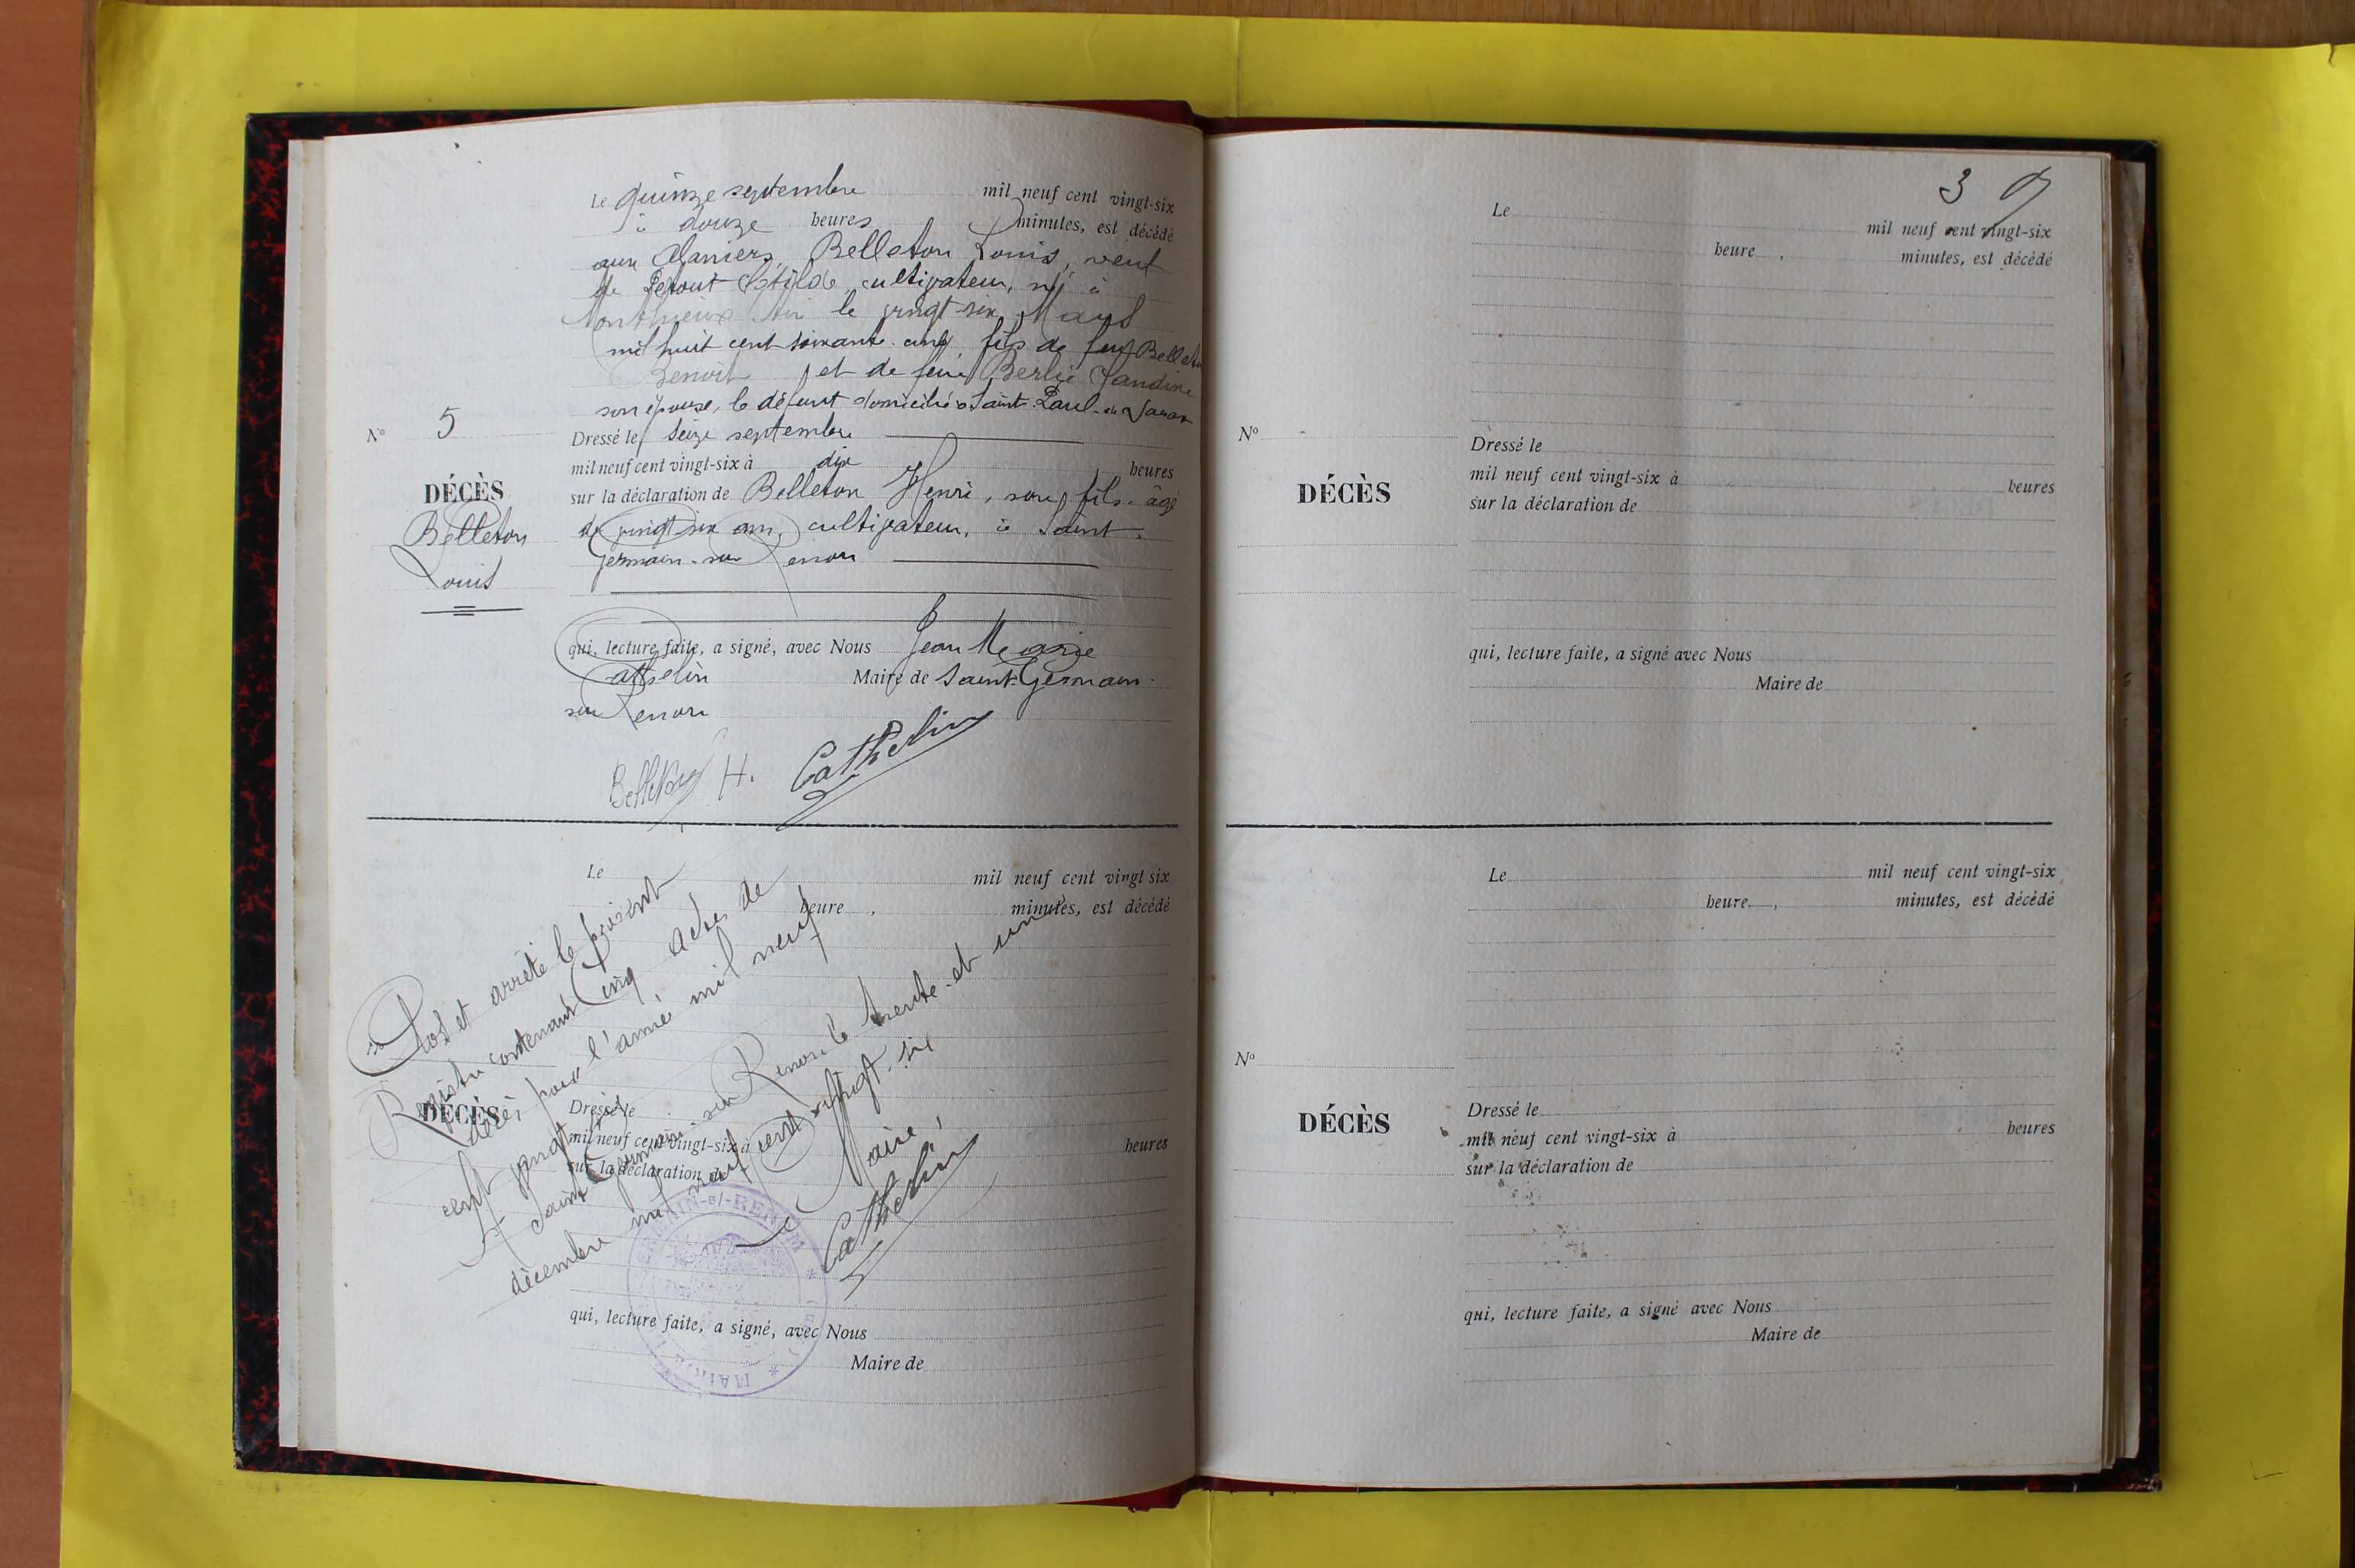 Le quinze septembre mil neuf cent vingt-six
à douze heures minutes, est décédé
aux Maniers, Belleton Louis, veuf
de Petout Clotilde, cultivateur, né à
Monthieux Ain le vingt-six Mars
mil huit cent soixante cinq, fils de feu Belleton
Benoit et de feue Berlie Jandine
son épouse, le défunt domicilié à Saint-Paul-de-Varax
N° 5
Dressé le seize septembre
mil neuf cent vingt-six à dix heures
DÉCÈS
sur la déclaration de Belleton Henri, son fils, âgé
Belleton
de vingt six ans, cultivateur, à Saint-
Louis
Germain-sur Renon
qui, lecture faite, a signé, avec Nous Jean Marie
Cathelin Maire de Saint-Germain-
sur Renon
Belleton H. Cathelin
Le mil neuf cent vingt six
heure , minutes, est décédé
DÉCÈS
Dressé le
mil neuf cent vingt-six à heures
sur la déclaration de
Clos et arrêté le présent
Registre contenant Cinq actes de
décès pour l'année mil neuf
cent vingt six
Saint Germain sur Renon le trente-et un
décembre mil neuf cent vingt-six
Maire,
Cathelin
qui, lecture faite, a signé, avec Nous
Maire de
MAIRIE GERMAIN-s/-RENOM
3
Le mil neuf cent vingt-six
heure , minutes, est décédé
N°
Dressé le
mil neuf cent vingt-six à heures
DÉCÈS
sur la déclaration de
qui, lecture faite, a signé avec Nous
Maire de
Le mil neuf cent vingt-six
heure , minutes, est décédé
N°
Dressé le
DÉCÈS
mil neuf cent vingt-six à heures
sur la déclaration de
qui, lecture faite, a signé avec Nous
Maire de